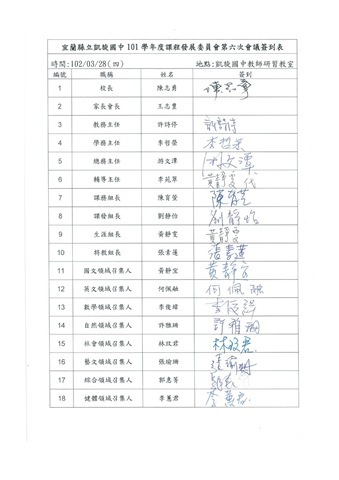 宜蘭縣立凱旋國中101學年度課程發展委員會第六次會議簽到表
時間:102/03/28(四) 地點:凱旋國中教師研習教室
編號 職稱 姓名 簽到
1 校長 陳志勇 陳志勇
2 家長會長 王志豐
3 教務主任 許詩停
4 學務主任 李哲榮 李哲榮
5 總務主任 游文潭 游文潭
6 輔導主任 李苑翠 黃靜雯代
7 課務組長 陳育萱 陳育萱
8 課發組長 劉靜怡 劉靜怡
9 生涯組長 黃靜雯 黃靜雯
10 特教組長 張素蓮 張素蓮
11 國文領域召集人 黃靜宜 黃靜宜
12 英文領域召集人 何佩融 何佩融
13 數學領域召集人 李俊緯
14 自然領域召集人 許雅琇
15 社會領域召集人 林玟君 林玟君
16 藝文領域召集人 張瑜珊 張瑜珊
17 綜合領域召集人 郭惠菁
18 健體領域召集人 李蕙君 李蕙君